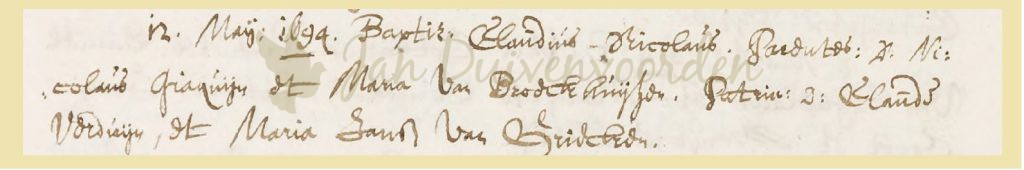 12. May: 1694. Baptiz: Elandius - Nicolaus. Parentes: D. Ni:
colaus Jiaquijn et Maria Van Broeckhuijsen. Patrin: D: Elands
Verduijn, et Maria Jans Van Griecken.
Jan Duivenvoorden